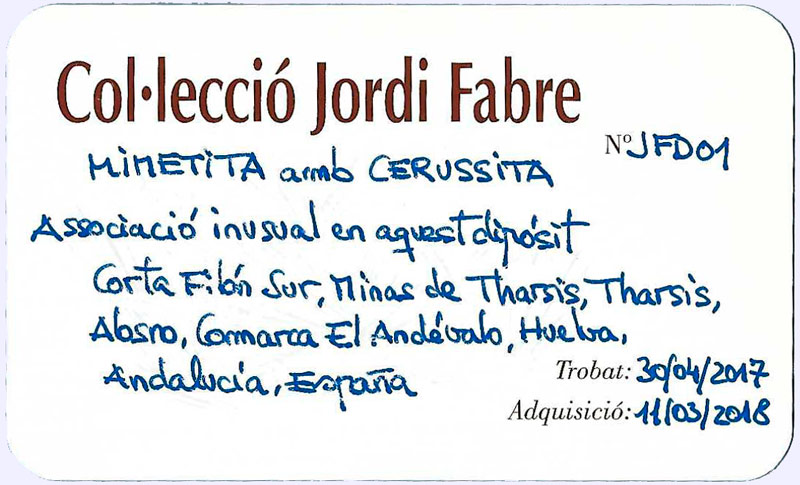 Col·lecció Jordi Fabre
Nº JFD01
MIMETITA amb CERUSSITA
Associació inusual en aquest dipòsit
Corta Filón Sur, Minas de Tharsis, Tharsis,
Alosno, Comarca El Andévalo, Huelva,
Andalucía, España
Trobat: 30/04/2017
Adquisició: 11/03/2018